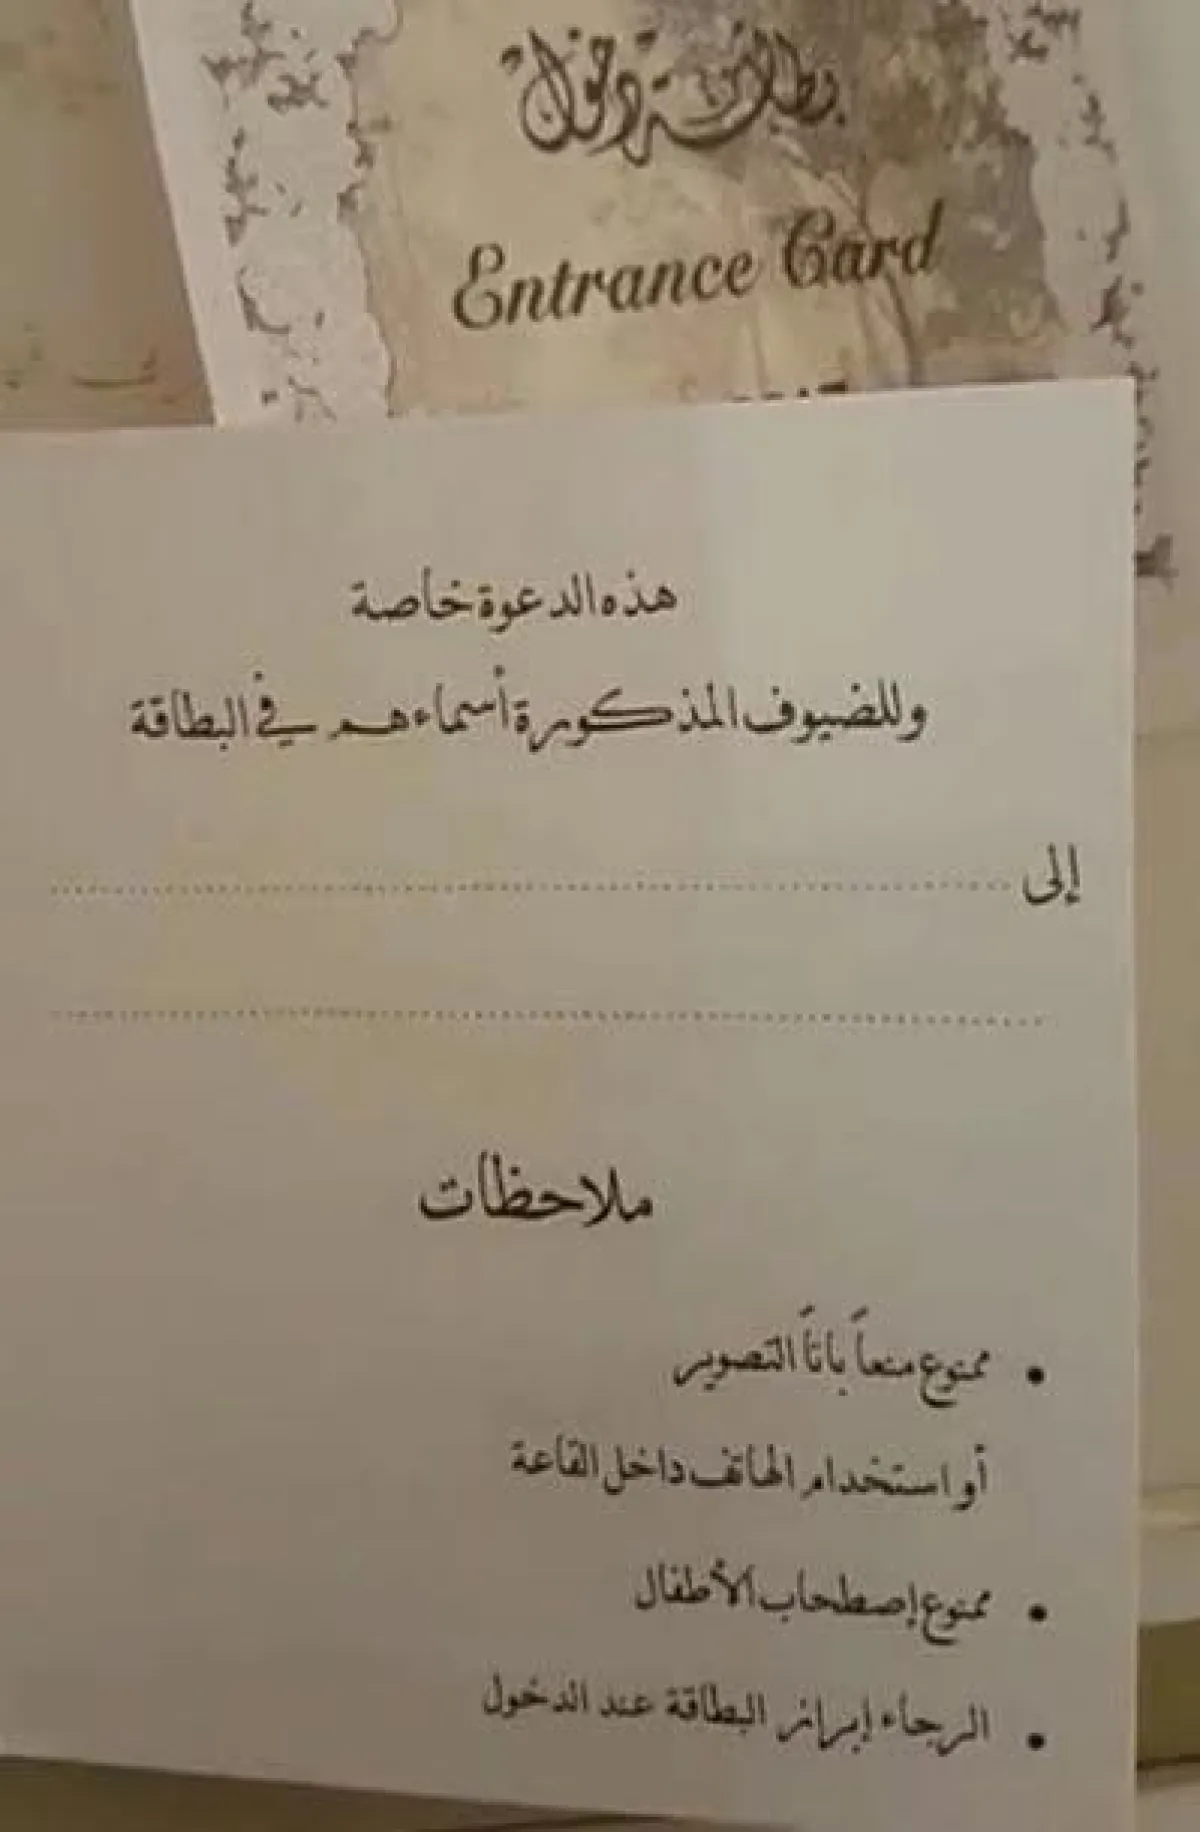 بطاقة دخول
Entrance Card
هذه الدعوة خاصة
وللضيوف المذكورة أسماءهم في البطاقة
إلى
ملاحظات
• ممنوع منعاً باتاً التصوير
أو استخدام الهاتف داخل القاعة
• ممنوع إصطحاب الأطفال
• الرجاء إبراز البطاقة عند الدخول